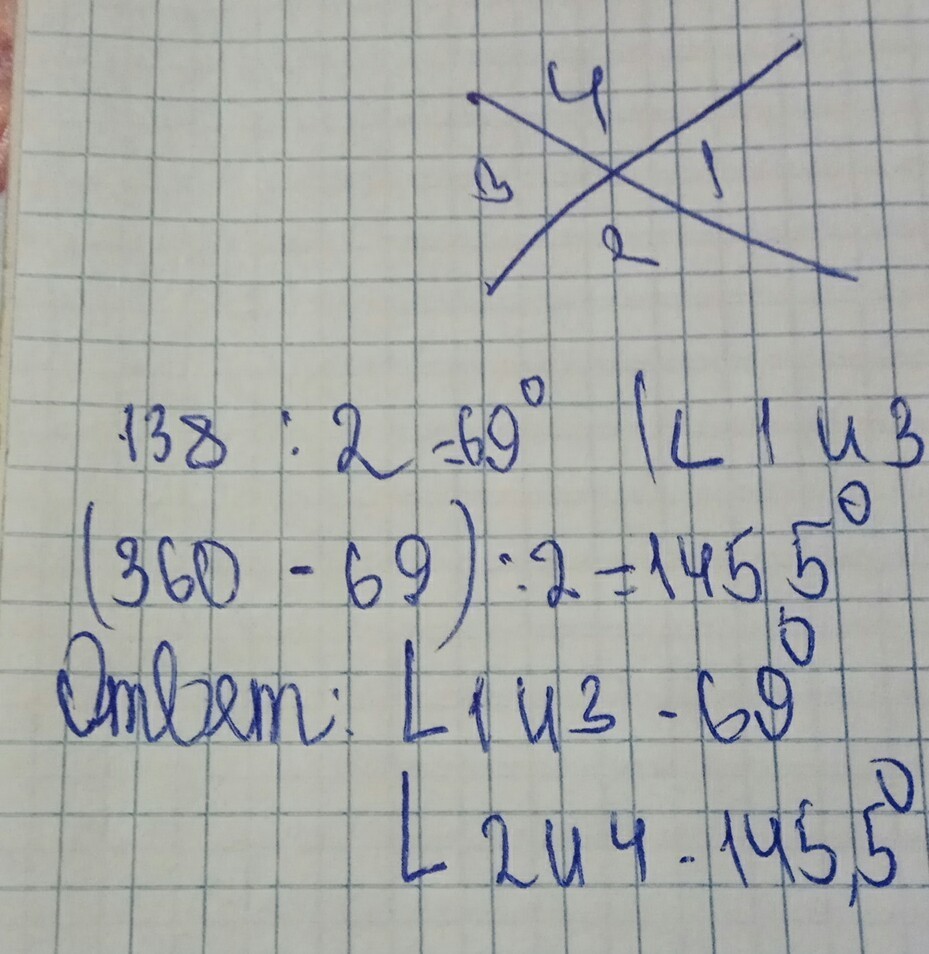 4
3 1
2
138 : 2 = 69° (∠ 1 и 3
(360 - 69) : 2 = 145 5°
Ответ: ∠ 1 и 3 - 69°
∠ 2 и 4 - 145,5°